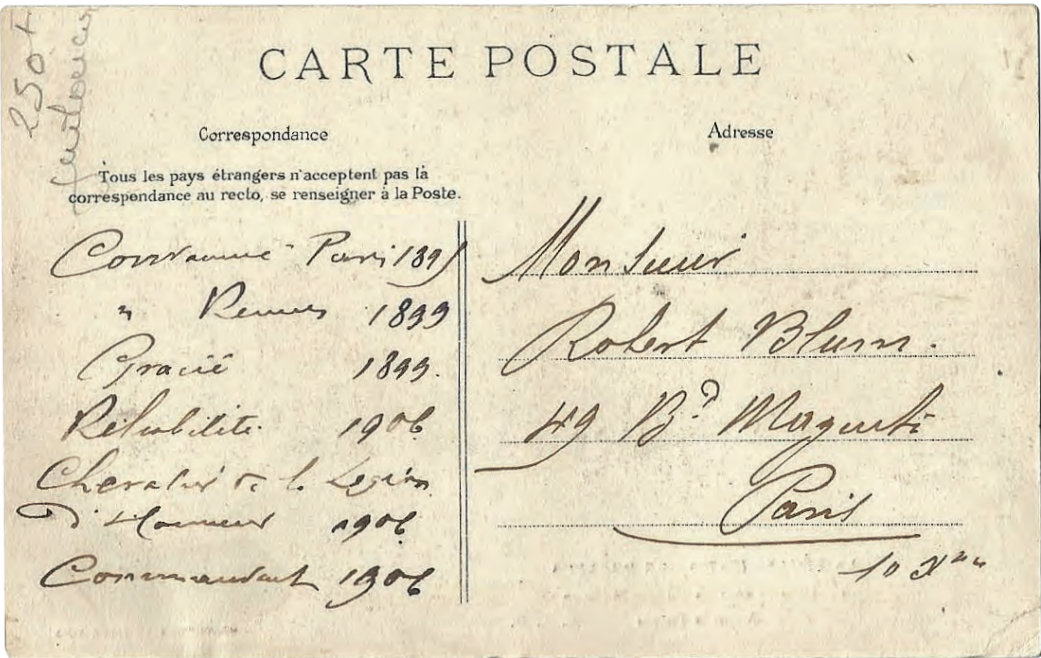 250 F
CARTE POSTALE
Correspondance
Tous les pays étrangers n'acceptent pas la
correspondance au recto, se renseigner à la Poste.
Condamné Paris 1895
" Rennes 1899
Gracié 1899.
Réhabilité 1906
Chevalier de la Légion
d'Honneur 1906
Commandant 1906
Adresse
Monsieur
Robert Blum.
49 Bd Magenta
Paris
10 Xme